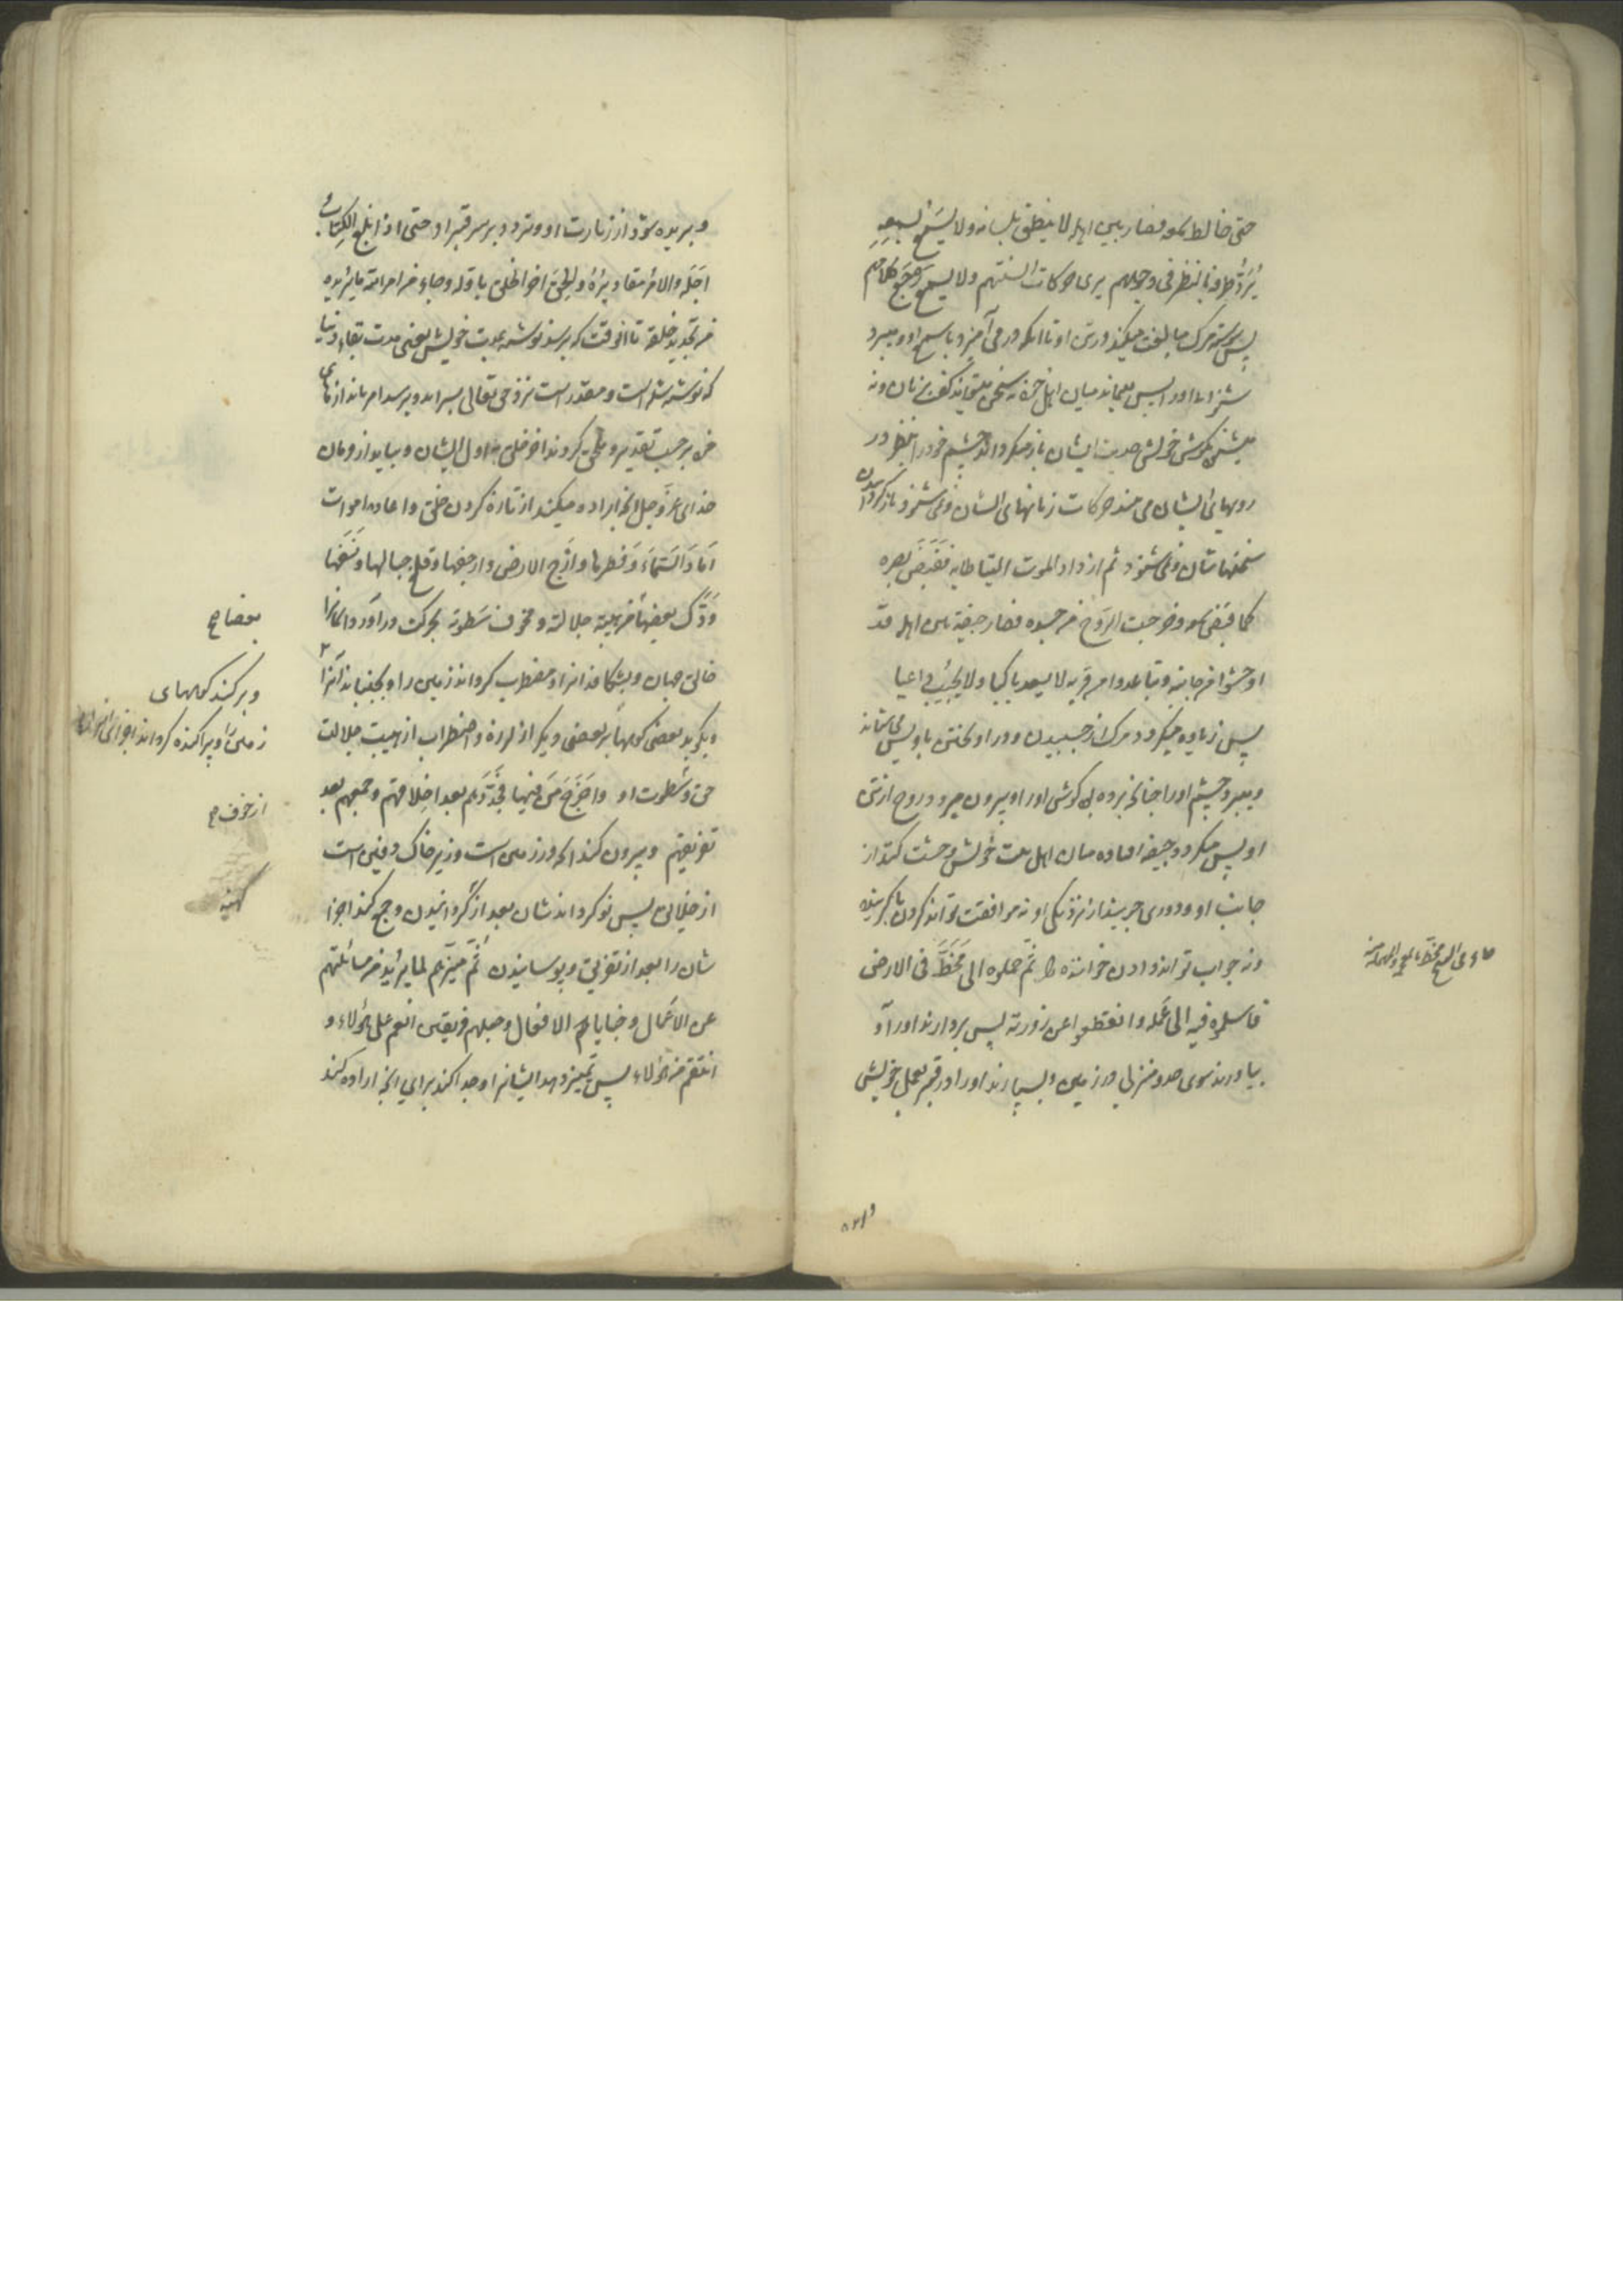 حتی خالط سمعه فصار بین اهله لا ینطق بلسانه ولا یسمع بسمعه
یردد طرفه بالنظر فی وجوههم یری حرکات السنتهم ولا یسمع رجع کلامهم
پس پیوسته مرگ مبالغت میکند در تن او تا آنکه در می آمیزد با سمع او و میبرد
میان اهل خود نه سخن میتواند گفت بزبان ونه
میشنود بگوش خویش حدیث ایشان باز میگرداند چشم خود را بنظر در
رویهای ایشان می بیند حرکات زبانهای ایشان ونمی شنود باز گردانیدن
سخنهاشان ونمی شنود ثم ازداد الموت التیاطا به فقبض بصره
کما قبض سمعه وخرجت الروح من جسده فصار جیفة بین اهله قد
اوحشوا من جانبه وتباعدوا من قربه لا یسعد باکیا ولا یجیب داعیا
پس زیاده میگردد مرگ از چسبیدن
ومیبرد چشم او را چنانچه برده گوش او را و بیرون میرود روح از تن
او پس میگردد جیفه افتاده میان اهل بیت خویش وحشت گیرند از
جانب او ودوری جویند از نزدیکی او نه موافقت تواند کردن با گرینده
ونه جواب تواند دادن خواننده را ثم حملوه الی مخط فی الارض
فاسلموه فیه الی عمله وانقطعوا عن زورته پس بردارند او را و
بیاورند سوی منزلی در زمین وبسپارند او را در قبر بعمل خویش
وبریده شوند از زیارت او وتردد بر سر قبر او حتی اذا بلغ الکتاب
اجله والامر مقادیره والحق آخر الخلق باوله وجاء من امر الله ما یریده
من تجدید خلقه تا آنوقت که برسد نوشته بمدت خویش یعنی مدت بقای دنیا
که نوشته شده است ومقدر است نزد حق تعالی بسر آید وبرسد امر باندازهای
خود بر حسب تقدیر وملحق گردد آخر خلق به اول ایشان وبیاید از فرمان
خدای عز وجل آنچه اراده میکند از تازه کردن خلق واعاده اموات
اماد السماء وفطرها وارج الارض وارجفها وقلع جبالها ونسفها
ودک بعضها بعضا من هیبة جلالته ومخوف سطوته بحرکت در آورد آسمانرا
خالق جهان وبشکافد آنرا ومضطرب گرداند زمین را وبجنباند آنرا
وبکوبد بعضی کوهها بر بعضی دیگر از لرزه واضطراب از هیبت جلالت
حق وسطوت او واخرج من فیها فجددهم بعد اخلاقهم وجمعهم بعد
تفریقهم وبیرون کند آنکه در زمین است وزیر خاک دفین است
از خلایق پس نو گرداند شان بعد از کهنه گردانیدن وجمع کند اجزا
شان را بعد از تفریق وپوسانیدن ثم میزهم لما یرید من مسائلتهم
عن الاعمال وخبایا الافعال وجعلهم فریقین انعم علی هؤلاء و
انتقم من هؤلاء پس تمیز دهد ایشانرا وجدا کند برای آنچه اراده کند
بعضا صح
وبرکند کوههای
زمین را وپراکنده گرداند اجزای آنرا
از خوف صح
کهنه